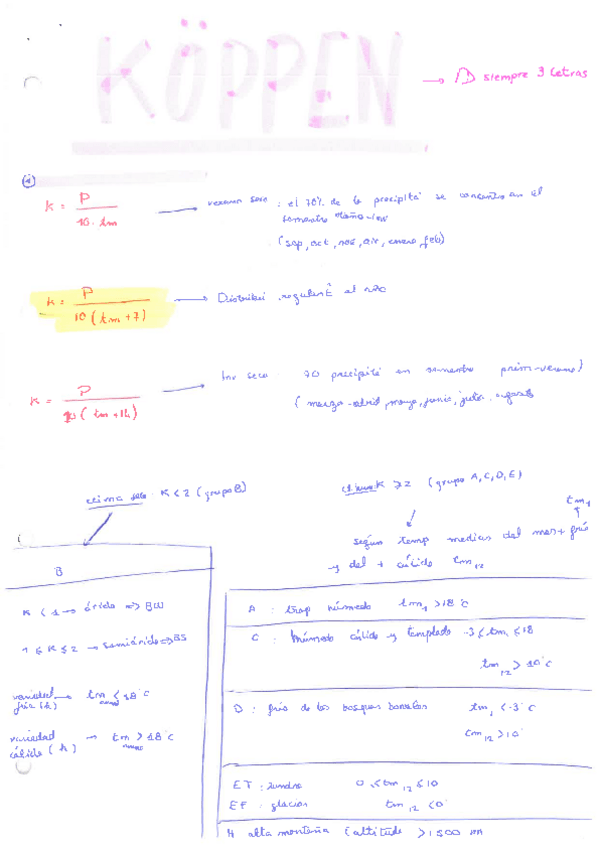 KÖPPEN
→ siempre 3 letras
①
K = P / 10 · tm → verano seco : el 70% de la precipita se concentra en el
semestre otoño-inv
(sep, oct, nov, dic, enero, feb)
K = P / 10 (tm + 7) → Distribui regular el año
K = P / 10 (tm + 14) → Inv seco 70 precipita en semestre prim-verano)
(marzo, abril, mayo, junio, julio, agosto
clima seco K < 2 (grupo B)
K ≥ 2 (grupo A, C, D, E)
según temp medias del mes + frío tm₁
y del + cálido tm₁₂
B
K < 1 → árido => BW
1 ≤ K ≤ 2 → semiárido => BS
variedad fría (k) → tm < 18°c
variedad cálida (h) → tm > 18°c
A : trop húmedo tm₁ > 18°c
C : húmedo cálido y templado -3 ≤ tm₁ ≤ 18
tm₁₂ > 10°c
D : frío de los bosques boreales tm₁ < -3°c
tm₁₂ > 10°
ET : tundra 0 ≤ tm₁₂ ≤ 10
EF : glaciar tm₁₂ < 0°
H alta montaña (altitude > 1500 m